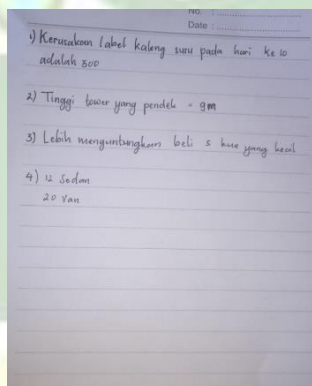 No. :
Date :
1) Kerusakan label kaleng susu pada hari ke 10
adalah 500
2) Tinggi tower yang pendek = 9m
3) Lebih menguntungkan beli 5 kue yang kecil
4) 12 Sedan
20 Van